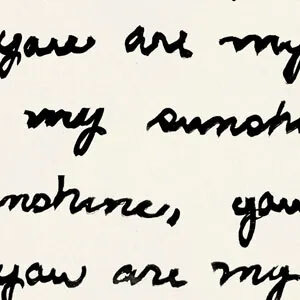 you are my
my sunshi
nshine, you
you are my